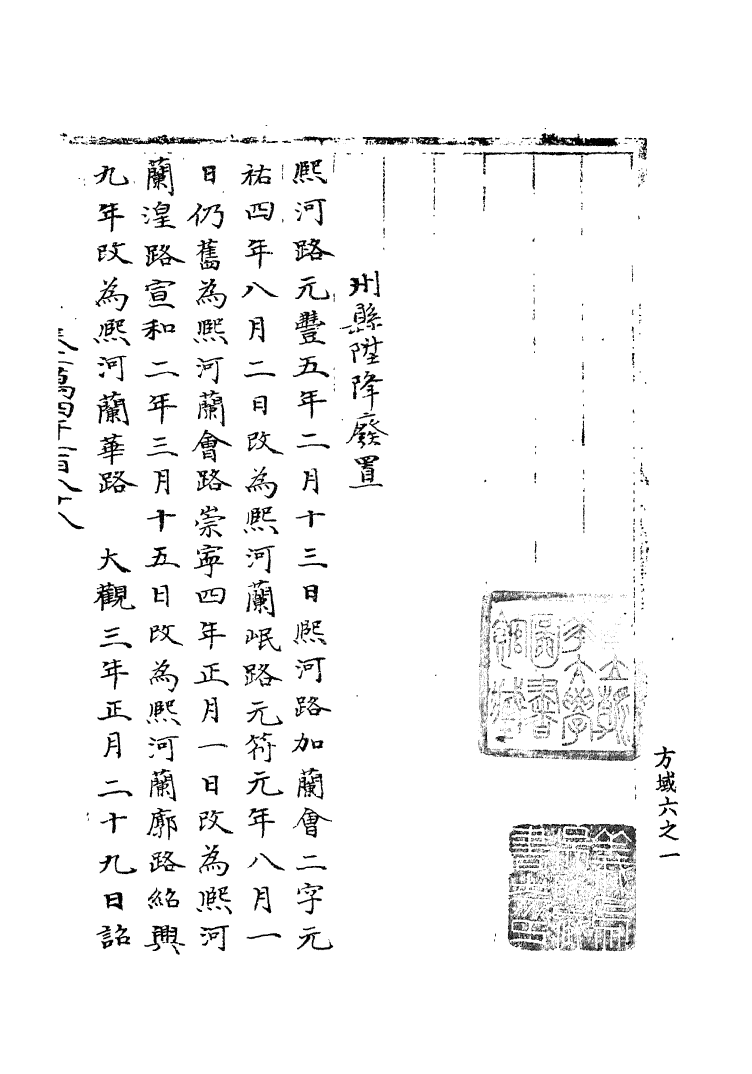 方域六之一
州縣陞降廢置
熙河路元豐五年二月十三日熙河路加蘭會二字元
祐四年八月二日改為熙河蘭岷路元符元年八月一
日仍舊為熙河蘭會路崇寧四年正月一日改為熙河
蘭湟路宣和二年三月十五日改為熙河蘭廓路紹興
九年改為熙河蘭鞏路 大觀三年正月二十九日詔
卷二萬四千一百八十八